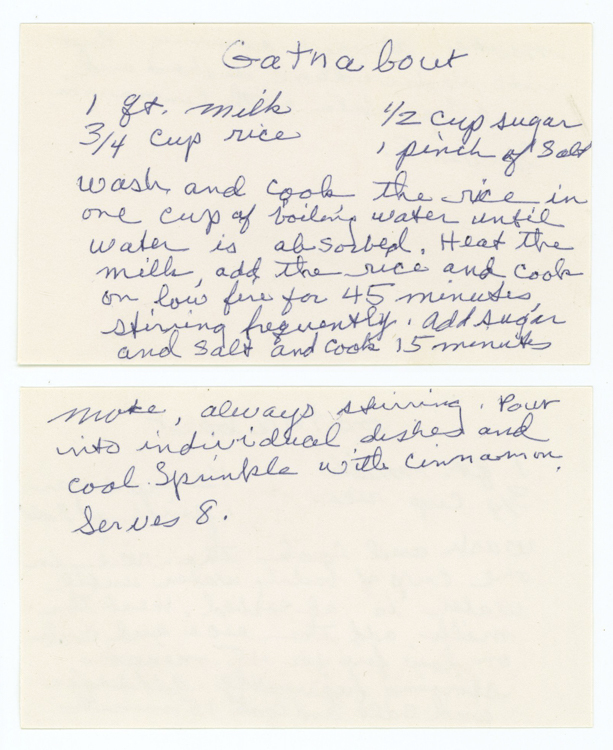 Gatnabout
1 qt. milk
3/4 cup rice
1/2 cup sugar
1 pinch of Salt
Wash and cook the rice in
one cup of boiling water until
water is absorbed. Heat the
milk, add the rice and cook
on low fire for 45 minutes,
stirring frequently. Add sugar
and salt and cook 15 minutes
more, always stirring. Pour
into individual dishes and
cool. Sprinkle with cinnamon.
Serves 8.